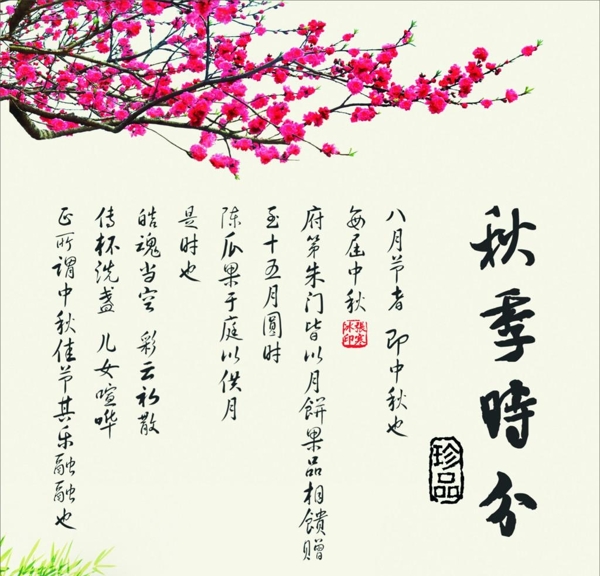 秋季時分
珍品
八月节者 即中秋也
每届中秋
張寒冰印
府第朱门皆以月餅果品相馈赠
至十五月圓时
陈瓜果于庭以供月
是时也
皓魂当空 彩云初散
传杯洗盏 儿女喧哗
正所谓中秋佳节其乐融融也